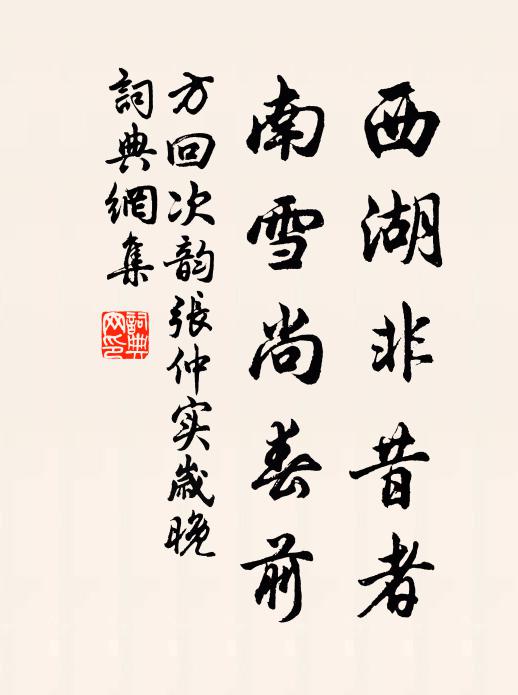 西湖非昔者
南雪尚春前
方回次韵張仲实歲晚
詞典網集
詞典网印